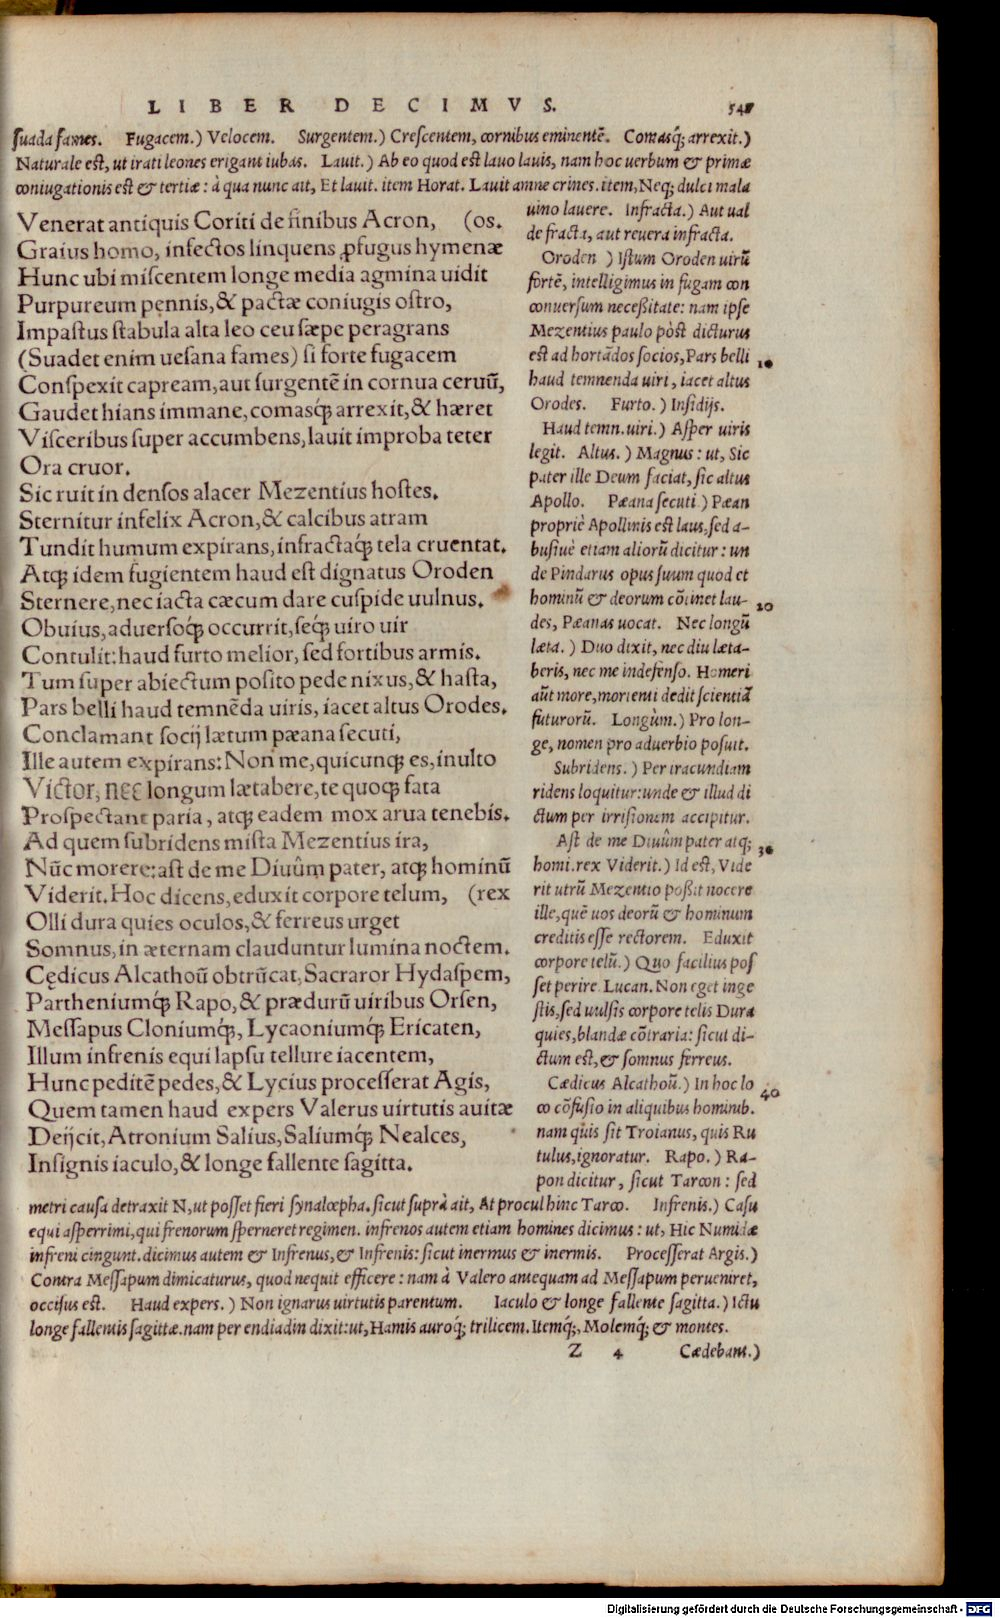 LIBER DECIMVS. 547
suada fames. Fugacem.) Velocem. Surgentem.) Crescentem, cornibus eminentẽ. Comasq́; arrexit.)
Naturale est, ut irati leones erigant iubas. Lauit.) Ab eo quod est lauo lauis, nam hoc uerbum & primæ
coniugationis est & tertiæ: à qua nunc ait, Et lauit. item Horat. Lauit amne crines. item, Neq; dulci mala
Venerat antiquis Coriti de finibus Acron, (os.
Graius homo, infectos linquens ꝓfugus hymenæ
Hunc ubi miscentem longe media agmina uidit
Purpureum pennis, & pactæ coniugis ostro,
Impastus stabula alta leo ceu sæpe peragrans
(Suadet enim uesana fames) si forte fugacem
Conspexit capream, aut surgentẽ in cornua ceruũ,
Gaudet hians immane, comasq́; arrexit, & hæret
Visceribus super accumbens, lauit improba teter
Ora cruor.
Sic ruit in densos alacer Mezentius hostes.
Sternitur infelix Acron, & calcibus atram
Tundit humum expirans, infractaq́; tela cruentat.
Atq; idem fugientem haud est dignatus Oroden
Sternere, nec iacta cæcum dare cuspide uulnus.
Obuius, aduersoq́; occurrit, seq́; uiro uir
Contulit: haud furto melior, sed fortibus armis.
Tum super abiectum posito pede nixus, & hasta,
Pars belli haud temnẽda uiris, iacet altus Orodes.
Conclamant socij lætum pæana secuti,
Ille autem expirans: Non me, quicunq; es, inulto
Victor, nec longum lætabere, te quoq; fata
Prospectant paria, atq; eadem mox arua tenebis.
Ad quem subridens mista Mezentius ira,
Nũc morere: ast de me Diuûm pater, atq; hominũ
Viderit. Hoc dicens, eduxit corpore telum, (rex
Olli dura quies oculos, & ferreus urget
Somnus, in æternam clauduntur lumina noctem.
Cędicus Alcathoũ obtrũcat, Sacraror Hydaspem,
Partheniumq́; Rapo, & prædurũ uiribus Orsen,
Messapus Cloniumq́;, Lycaoniumq́; Ericaten,
Illum infrenis equi lapsu tellure iacentem,
Hunc peditẽ pedes, & Lycius processerat Agis,
Quem tamen haud expers Valerus uirtutis auitæ
Deijcit, Atronium Salius, Saliumq́; Nealces,
Insignis iaculo, & longe fallente sagitta.
uino lauere. Infracta.) Aut ual
de fracta, aut reuera infracta.
Oroden.) Istum Oroden uirũ
fortẽ, intelligimus in fugam con
conuersum necessitate: nam ipse
Mezentius paulo pòst dicturus
est ad hortãdos socios, Pars belli 10
haud temnenda uiri, iacet altus
Orodes. Furto.) Insidijs.
Haud temn. uiri.) Asper uiris
legit. Altus.) Magnus: ut, Sic
pater ille Deum faciat, sic altus
Apollo. Pæana secuti.) Pæan
propriè Apollinis est laus, sed a-
busiuè etiam aliorũ dicitur: un
de Pindarus opus suum quod et
hominũ & deorum cõtinet lau- 20
des, Pæanas uocat. Nec longũ
læta.) Duo dixit, nec diu læta-
beris, nec me indefenso. Homeri
aũt more, morienti dedit scientiã
futurorũ. Longùm.) Pro lon-
ge, nomen pro aduerbio posuit.
Subridens.) Per iracundiam
ridens loquitur: unde & illud di
ctum per irrisionem accipitur.
Ast de me Diuûm pater atq; 30
homi. rex Viderit.) Id est, Vide
rit utrũ Mezentio possit nocere
ille, quẽ uos deorũ & hominum
creditis esse rectorem. Eduxit
corpore telũ.) Quo facilius pos
set perire. Lucan. Non eget inge
stis, sed uulsis corpore telis Dura
quies, blandæ cõtraria: sicut di-
ctum est, & somnus ferreus.
Cædicus Alcathoũ.) In hoc lo 40
co cõfusio in aliquibus hominib.
nam quis sit Troianus, quis Ru
tulus, ignoratur. Rapo.) Ra-
pon dicitur, sicut Tarcon: sed
metri causa detraxit N, ut posset fieri synalœpha. sicut suprà ait, At procul hinc Tarco. Infrenis.) Casu
equi asperrimi, qui frenorum sperneret regimen. infrenos autem etiam homines dicimus: ut, Hic Numidæ
infreni cingunt. dicimus autem & Infrenus, & Infrenis: sicut inermus & inermis. Processerat Argis.)
Contra Messapum dimicaturus, quod nequit efficere: nam à Valero antequam ad Messapum perueniret,
occisus est. Haud expers.) Non ignarus uirtutis parentum. Iaculo & longe fallente sagitta.) Ictu
longe fallentis sagittæ. nam per endiadin dixit: ut, Hamis auroq́; trilicem. Itemq́;, Molemq́; & montes.
Z 4 Cædebant.)
Digitalisierung gefördert durch die Deutsche Forschungsgemeinschaft - DFG